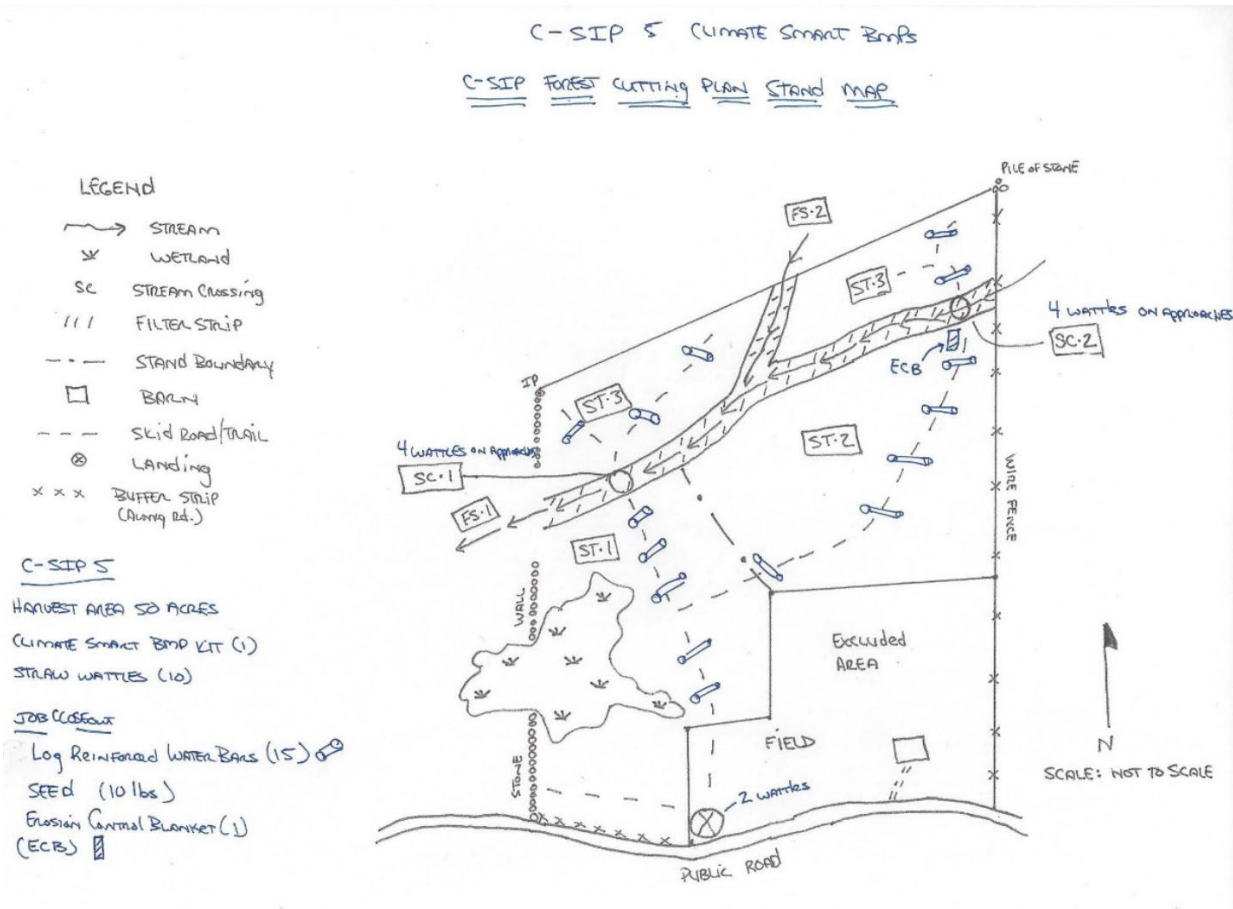 C-SIP 5 CLIMATE SMART BMPs
C-SIP FOREST CUTTING PLAN STAND MAP
LEGEND
STREAM
WETLAND
SC STREAM CROSSING
FILTER STRIP
STAND BOUNDARY
BARN
SKID ROAD/TRAIL
LANDING
x x x BUFFER STRIP
(ALONG Rd.)
C-SIP 5
HARVEST AREA 50 ACRES
CLIMATE SMART BMP KIT (1)
STRAW WATTLES (10)
JOB CLOSEOUT
Log Reinforced WATER BARS (15)
SEED (10 lbs)
Erosion Control Blanket (1)
(ECB)
PILE OF STONE
FS-2
ST-3
4 WATTLES ON APPROACHES
SC-2
ECB
IP
ST-3
ST-2
4 WATTLES ON APPROACHES
SC-1
FS-1
ST-1
WIRE FENCE
WALL
STONE
Excluded
AREA
FIELD
2 WATTLES
PUBLIC ROAD
N
SCALE: NOT TO SCALE